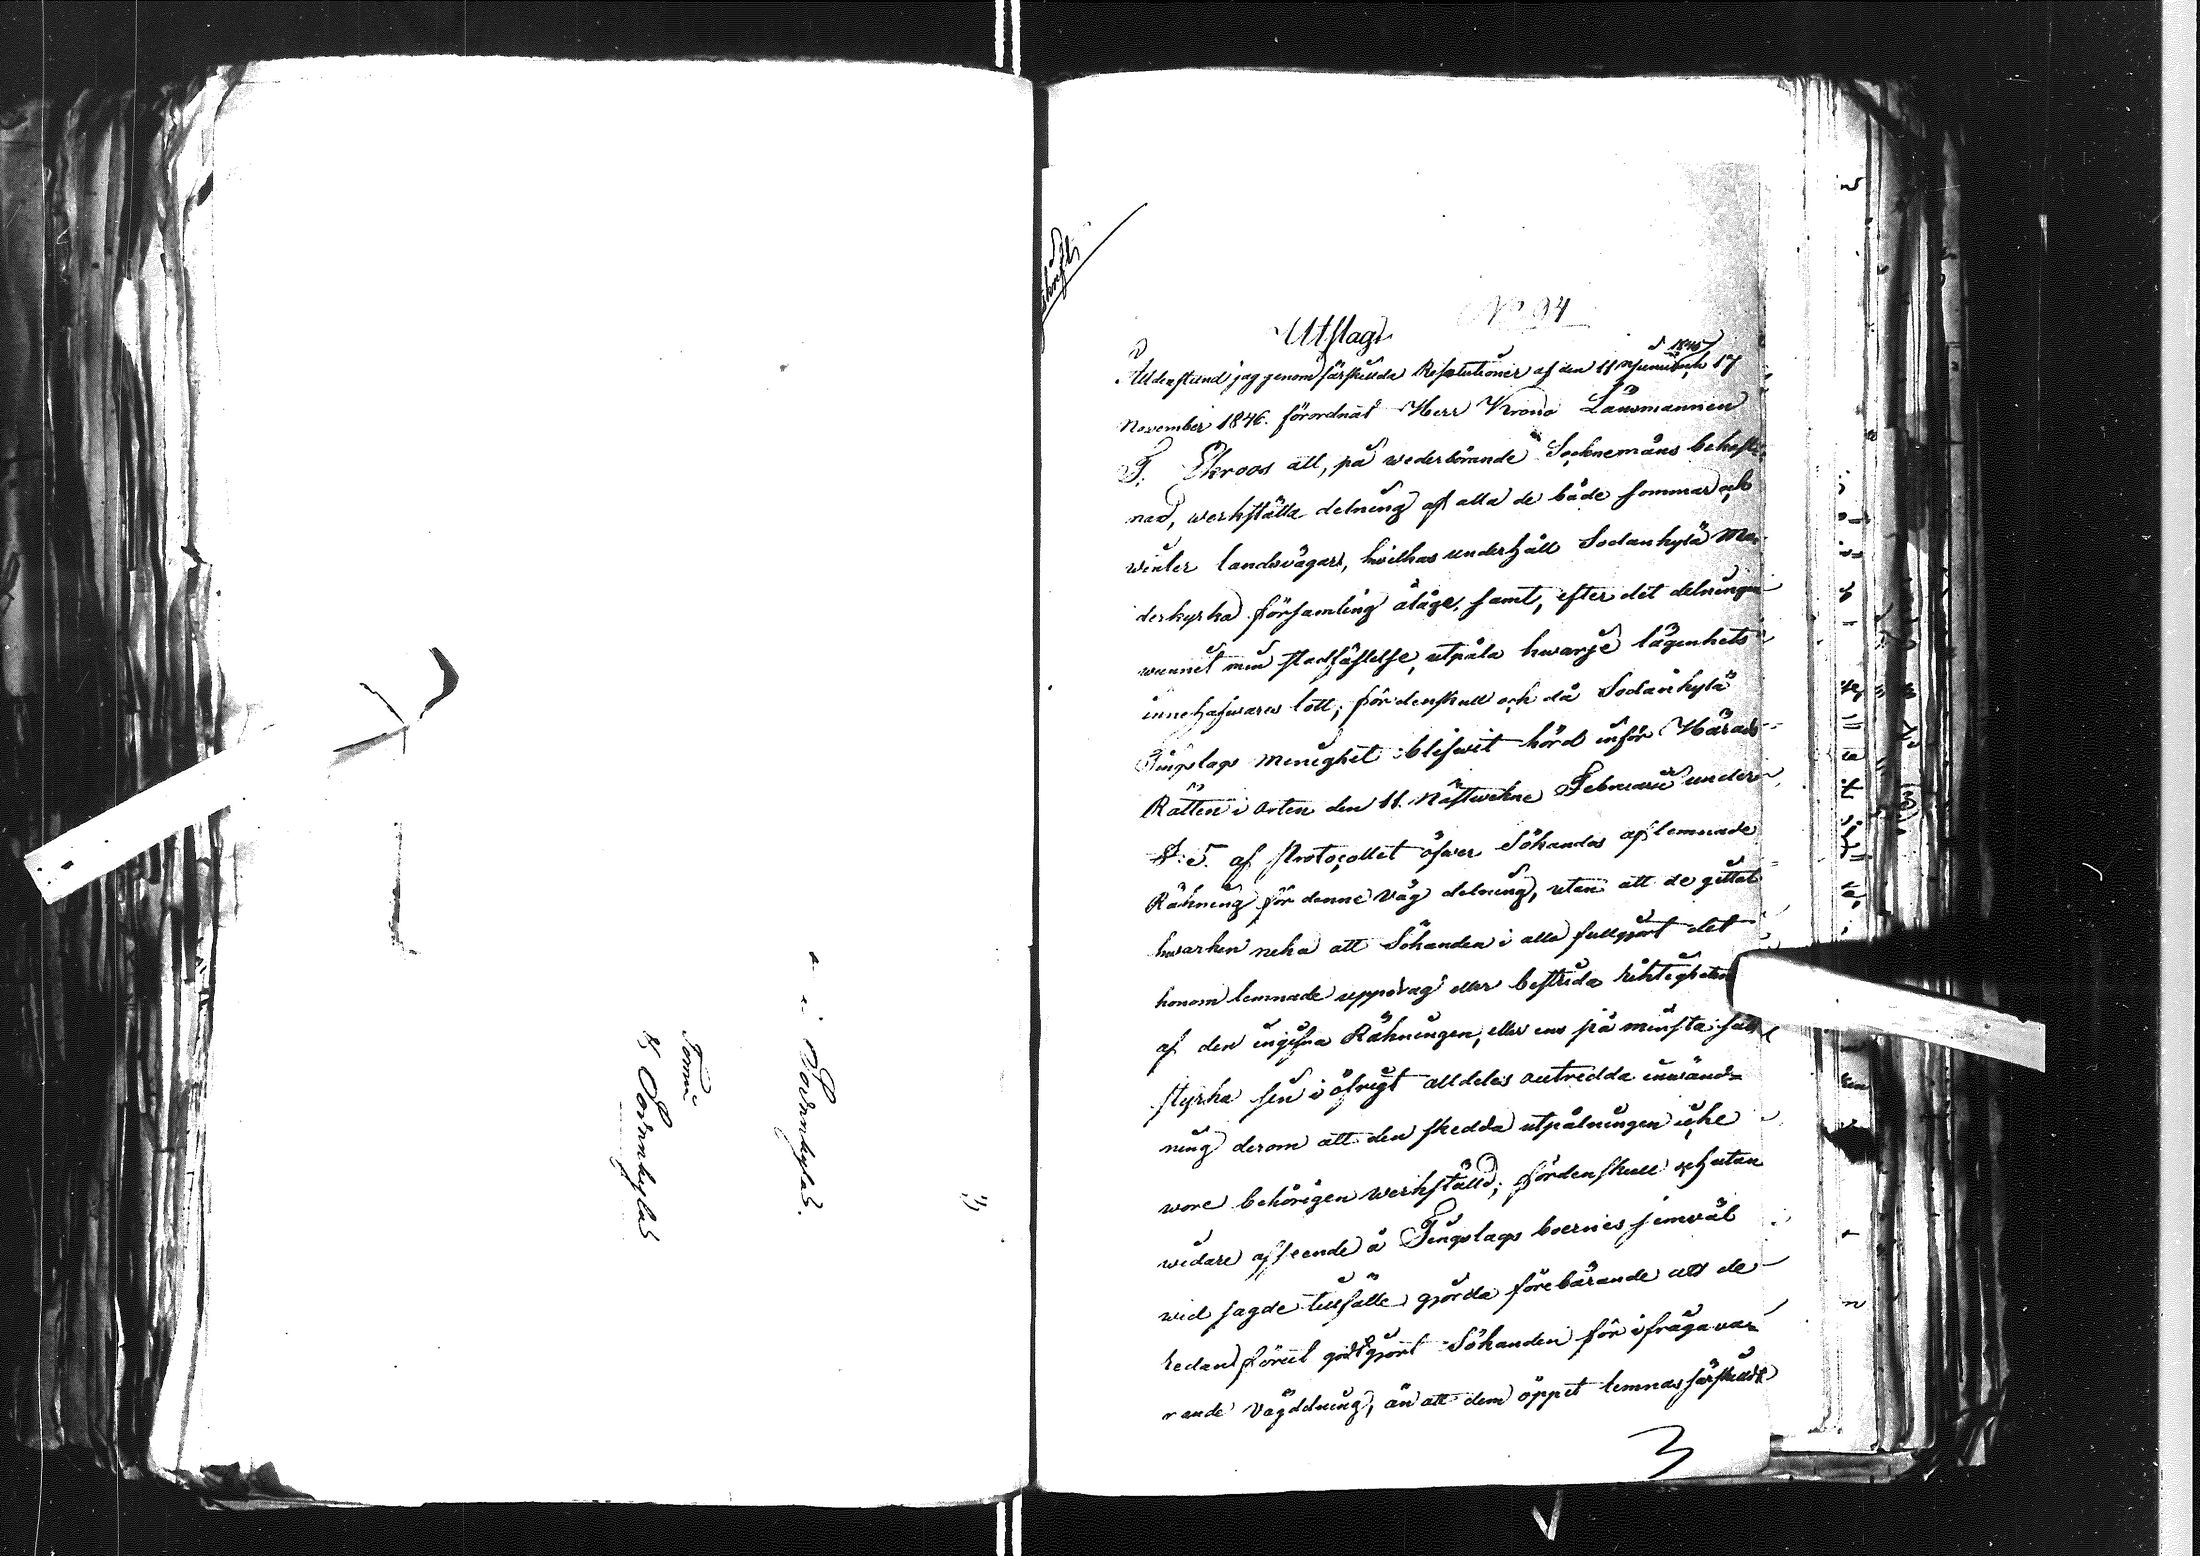 Tornio
Sodankylä
i Sodankylä.
Afskrift
No 94
Utslag
Alldenstund jag genom särskilda Resolutioner af den 11 Junii 1845 och 17
November 1846. förordnat Herr Krono Länsmannen
F. Ekroos att, på wederbörande Socknemäns bekost-
nad, werkställa delning af alla de både sommar och
winter landsvägar, hwilkas underhåll Sodankylä Mo-
derkyrko församling åläge, samt, efter det delningen
wunnit min stadfästelse, utpåla hwarje lägenhets
innehafwares lott; fördenskull och då Sodankylä
Tingslags menighet blifwit hörd inför Härads-
Rätten i orten den 11. nästwekne Februarii under
§. 5. af Protocollet öfwer Sökandes aflemnade
Räkning för denne väg delning, utan att de gittat
hwarken neka att Sökanden i allo fullgjort det
honom lemnade uppdrag eller bestrida riktigheten
af den ingifna Räkningen, eller ens på minsta sätt
styrka sin i öfrigt alldeles outredda inwänd-
ning derom att den skedda utpålningen icke
wore behörigen werkställd; fördenskull och utan
widare afseende å Tingslags boernes jemväl
wid sagde tillfälle gjorda förebärande att de
redan förut godtgjort Sökanden för ifrågava-
rande vägdelning, än att dem öppet lemnas särskildt
3